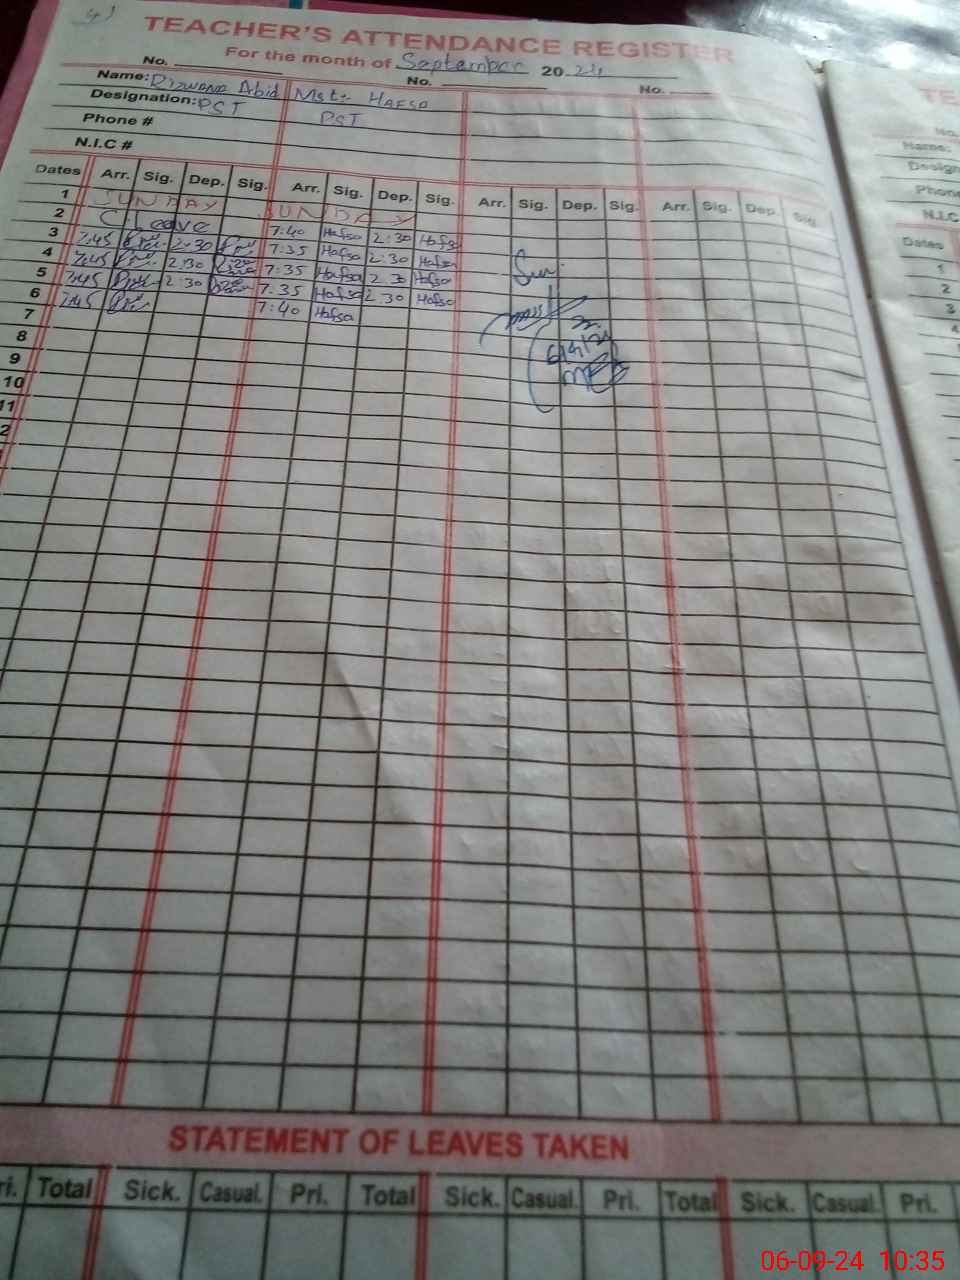 TEACHER'S ATTENDANCE REGISTER
For the month of September 2024
No. No. No.
Name: Rizwana Abid Mst:- HAFSA
Designation: PST PST
Phone #
N.I.C #
Dates Arr. Sig. Dep. Sig. Arr. Sig. Dep. Sig. Arr. Sig. Dep. Sig. Arr. Sig. Dep. Sig.
1 SUNDAY SUNDAY
2 C. Leave 7:40 Hafsa 2:30 Hafsa
3 7:45 2:30 7:35 Hafsa 2:30 Hafsa
4 7:45 2:30 7:35 Hafsa 2:30 Hafsa
5 7:45 2:30 7:35 Hafsa 2:30 Hafsa
6 7:45 7:40 Hafsa
7
8
9
10
11
2
STATEMENT OF LEAVES TAKEN
ri. Total Sick. Casual. Pri. Total Sick. Casual. Pri. Total Sick. Casual. Pri.
TE
No.
Name:
Design
Phone
N.I.C
Dates
1
2
3
4
5
06-09-24 10:35